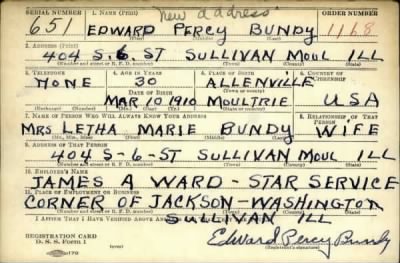 new address
SERIAL NUMBER 1. NAME (Print) ORDER NUMBER
651 EDWARD PERCY BUNDY 1168
2. ADDRESS (Print)
404 S-6 ST SULLIVAN MOUL ILL
(Number and street or R. F. D. number) (Town) (County) (State)
3. TELEPHONE 4. AGE IN YEARS 5. PLACE OF BIRTH 6. COUNTRY OF CITIZENSHIP
NONE 30 ALLENVILLE
DATE OF BIRTH (Town or county)
MAR 10 1910 MOULTRIE USA
7. NAME OF PERSON WHO WILL ALWAYS KNOW YOUR ADDRESS 8. RELATIONSHIP OF THAT PERSON
MRS LETHA MARIE BUNDY WIFE
(Mr., Mrs., Miss) (First) (Middle) (Last)
9. ADDRESS OF THAT PERSON
404 S-6-ST SULLIVAN MOUL ILL
(Number and street or R. F. D. number) (Town) (County) (State)
10. EMPLOYER'S NAME
JAMES A WARD-STAR SERVICE
11. PLACE OF EMPLOYMENT OR BUSINESS
CORNER OF JACKSON-WASHINGTON
SULLIVAN ILL
I AFFIRM THAT I HAVE VERIFIED ABOVE
REGISTRATION CARD
D. S. S. Form 1 Edward Percy Bundy
(Registrant's signature)